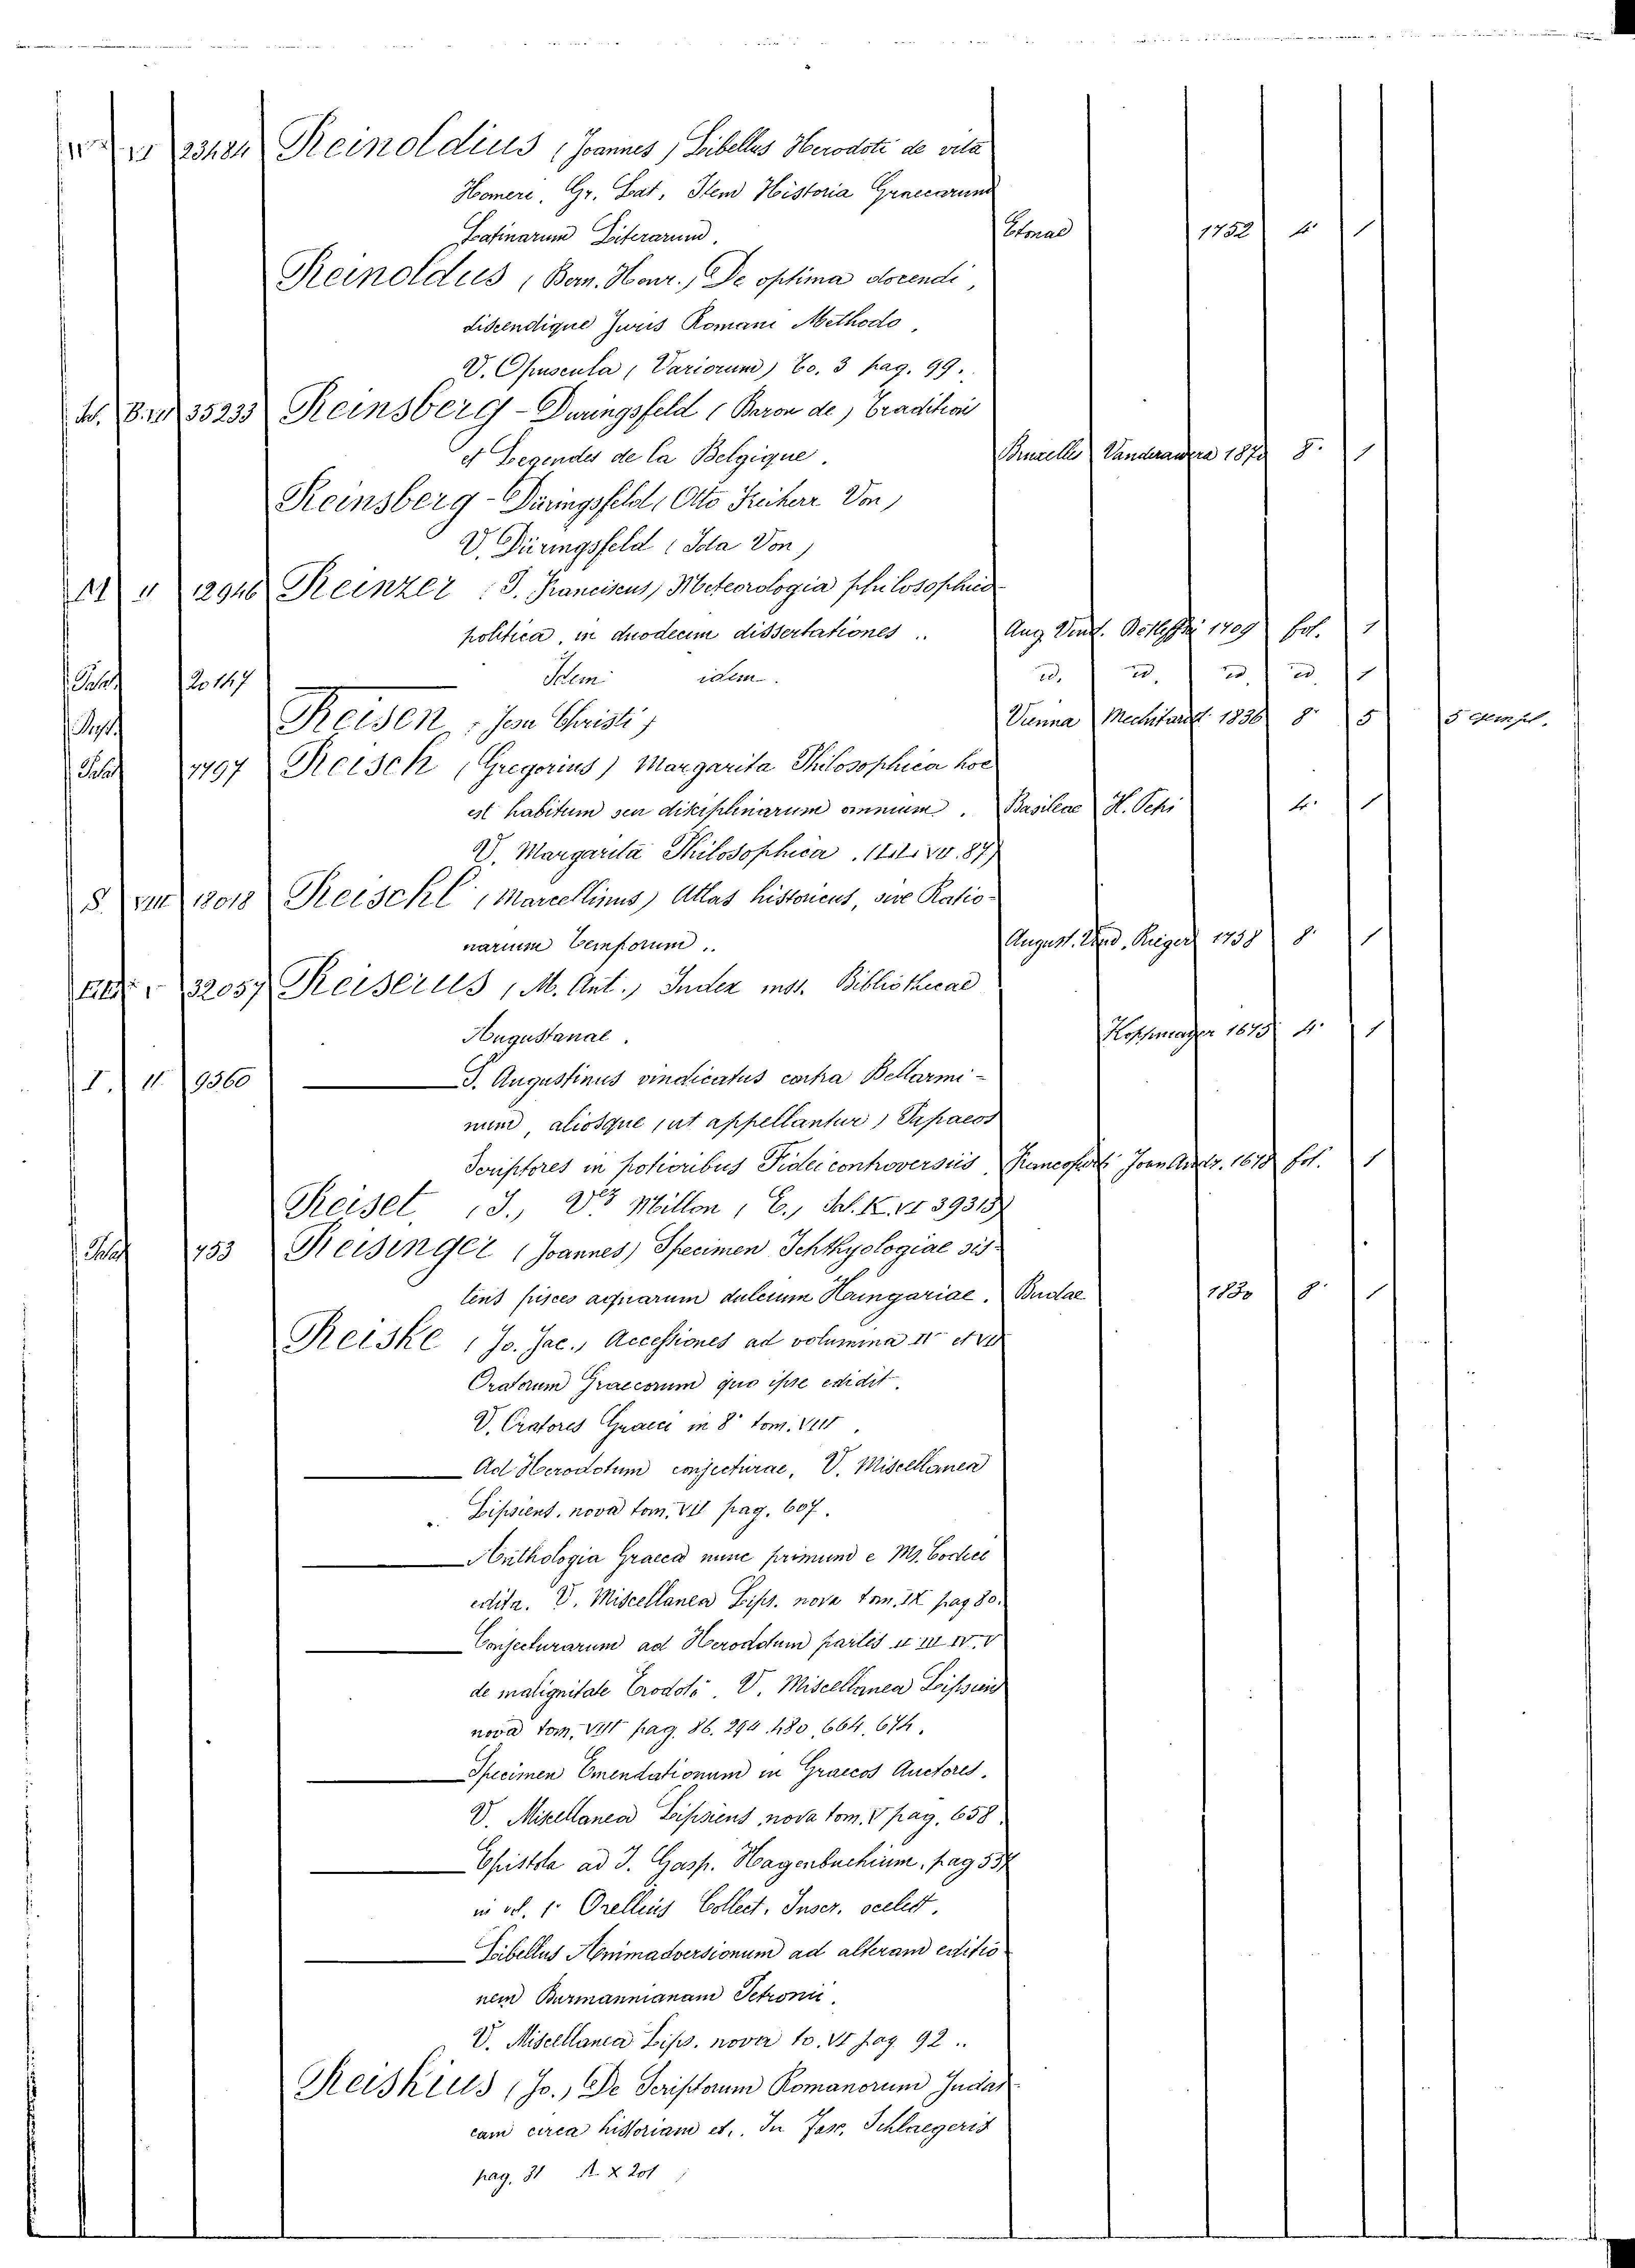 23484 Reinoldius (Joannes) Libellus Herodoti de vita
Homeri, Gr. Lat, Item Historia Graecarum
Latinarum Literarum. Etonae 1752 4° 1
Reinoldus (Bern. Henr.) De optima docendi,
discendique Juris Romani Methodo,
V. Opuscula (Variorum) To. 3 pag. 99.
35233 Reinsberg-Duringsfeld (Baron de) Tradition
et Legendes de la Belgique. Bruxelles 1870 8. 1
Reinsberg-Düringsfeld, Otto Freiherr Von)
V. Düringsfeld (Ida Von)
12946 Reinzer (S. Franciscus) Meteorologia philosophico
politica, in duodecim dissertationes .. Aug. Vind. 1709 fol. 1
20147 Idem idem. id. id. id. id. 1
Reisen, (Jesu Christi) Vienna Mechitarist. 1836 8° 5 5 exempl.
7797 Reisch (Gregorius) Margarita Philosophica hoc
est habitum seu disciplinarum omnium. Basileae H. Petri 4. 1
V. Margarita Philosophica
S. VIII 18018 Reischl (Marcellinus) Atlas historicus, sive Ratio-
narium Temporum .. August. Vind. Rieger 1758 8. 1
32057 Reiserus (M. Ant.) Index mss. Bibliothecae
Augustanae. 1675 4. 1
I. II 9560 — S. Augustinus vindicatus contra Bellarmi-
num, aliosque (ut appellantur) Papaeos
Scriptores in potioribus Fidei controversiis. Francoforti Joan Andr. 1678 fol. 1
Reiset, (J.) V. Millon (E.) Sal. K. VI 39315
753 Reisinger (Joannes) Specimen Ichthyologiae sis-
tens pisces aquarum dulcium Hungariae. Budae 1830 8. 1
Reiske (Jo. Jac.) Accessiones ad volumina II et VII
Oratorum Graecorum quo ipse edidit.
V. Oratores Graeci in 8° tom. VIII.
— Ad Herodotum conjecturae, V. Miscellanea
Lipsiens. nova tom. VII pag. 607.
— Anthologia Graeca nunc primum e Ms. Codice
edita. V. Miscellanea Lips. nova tom. IX pag 80.
— Conjecturarum ad Herodotum partes II III IV. V
de malignitate Erodoti. V. Miscellanea Lipsiens
nova tom. VIII pag. 86. 294. 480, 664, 674.
— Specimen Emendationum in Graecos Auctores.
V. Miscellanea Lipsiens, nova tom. V pag. 658.
— Epistola ad J. Gasp. Hagenbuchium, pag 537
in vol. 1. Orellius Collect. Inscr.
— Libellus Animadversionum ad alteram editio-
nem Burmannianam Petronii.
V. Miscellanea Lips. nova to. VI pag. 92 ..
Reiskius (Jo.) De Scriptorum Romanorum Judai-
cam circa historiam et. In Fasc. Schlaegeris
pag. 31 R. X 201